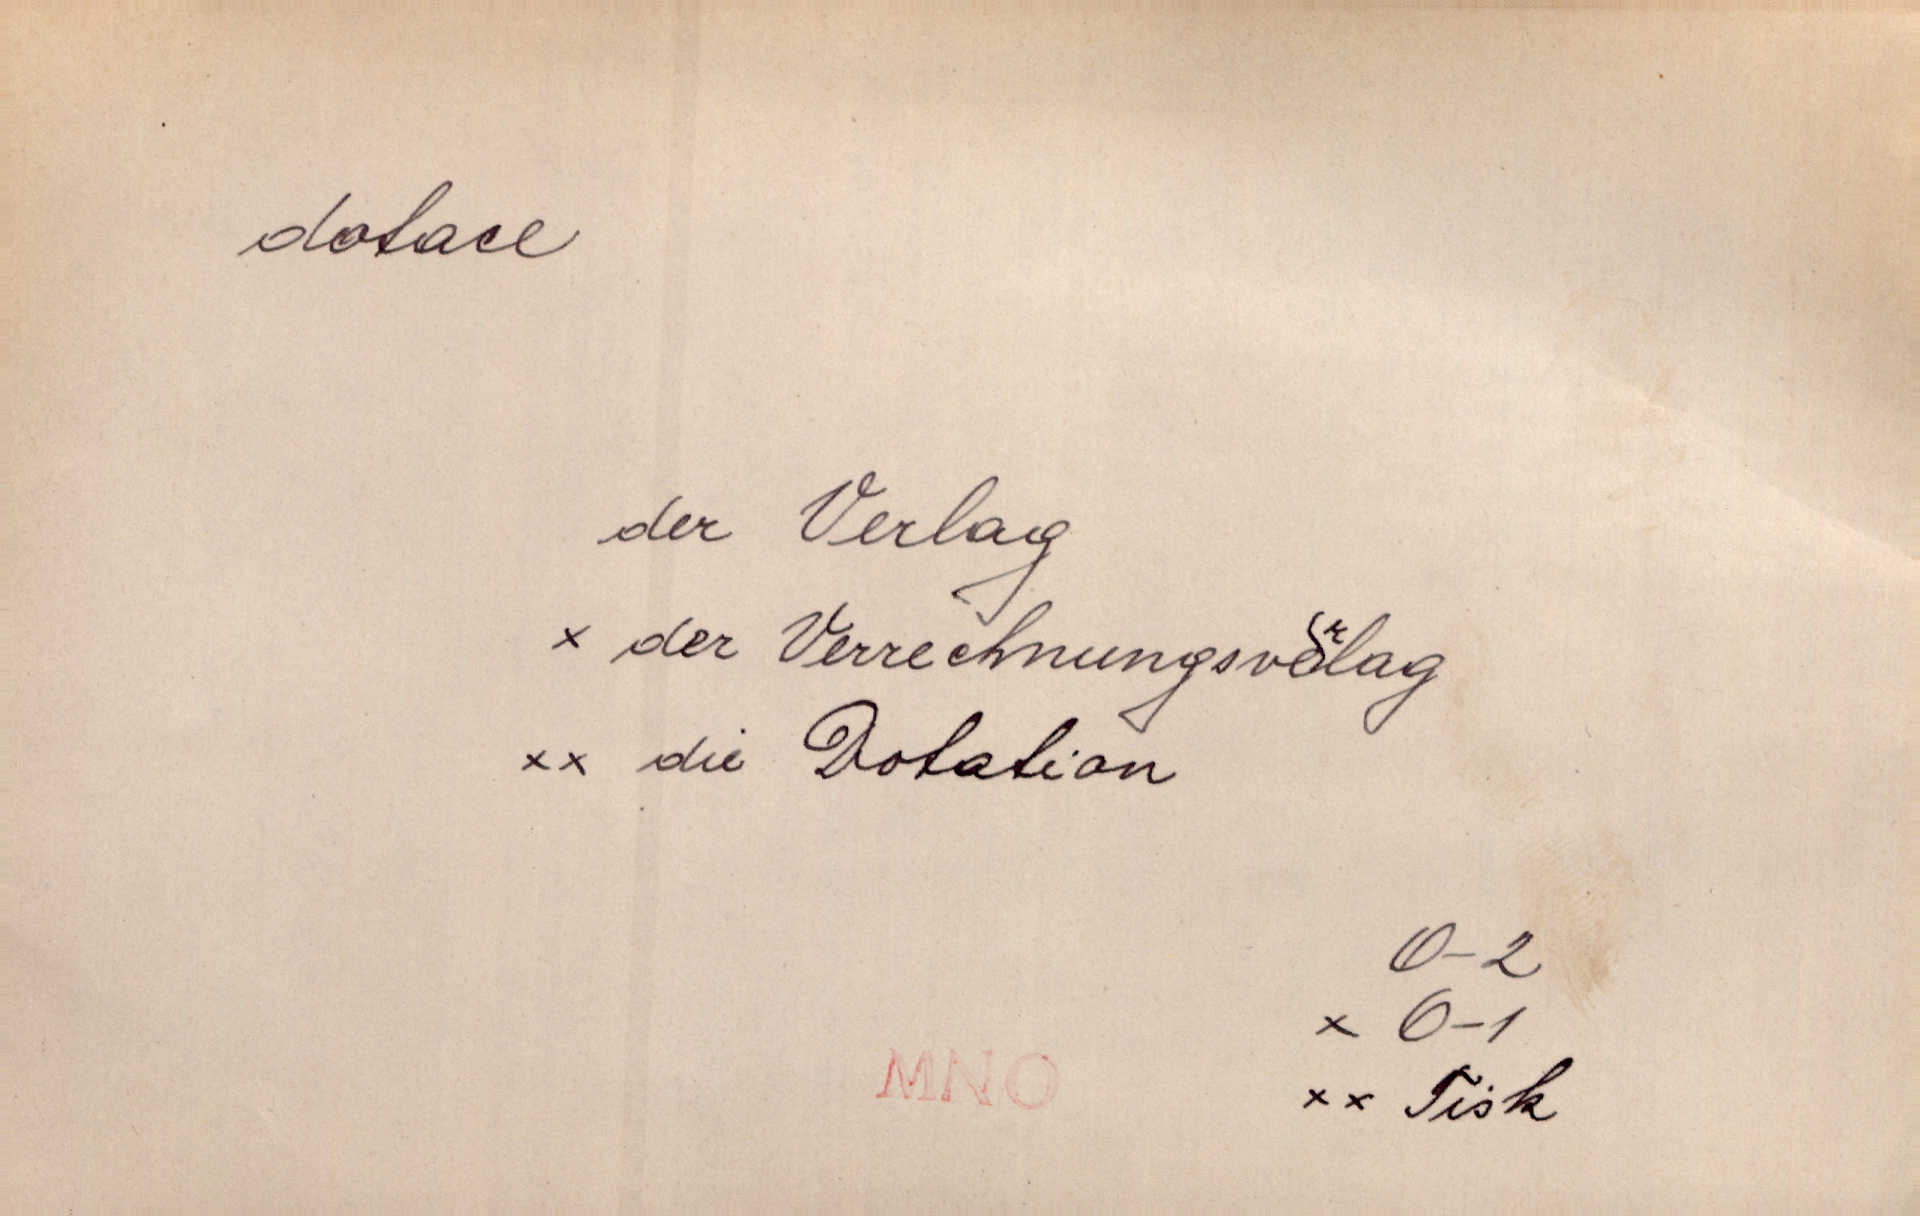 dotace
der Verlag
x der Verrechnungsverlag
xx die Dotation
O-2
x O-1
MNO
xx Tisk